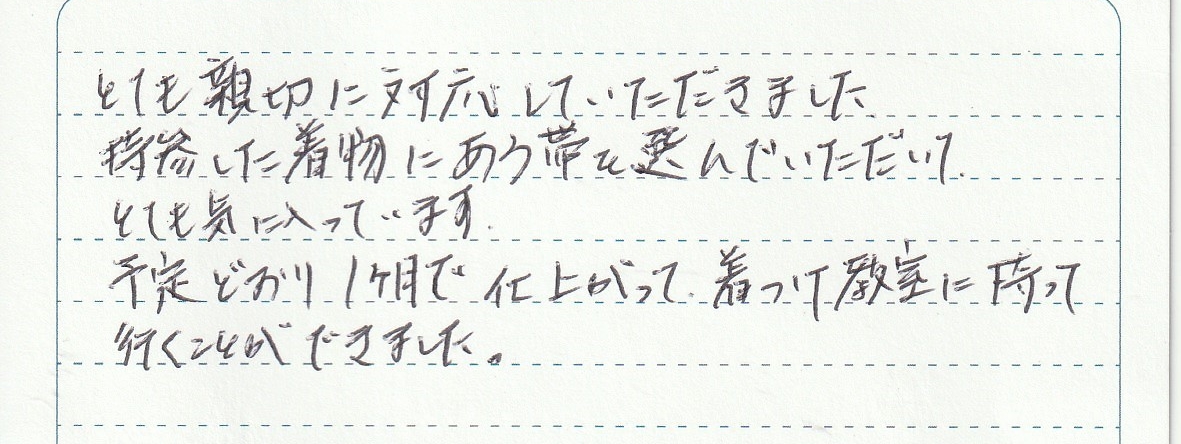 とても親切に対応していただきました
持参した着物にあう帯を選んでいただいて、
とても気に入っています.
予定どおり1ヶ月で仕上がって、着つけ教室に持って
行くことができました。